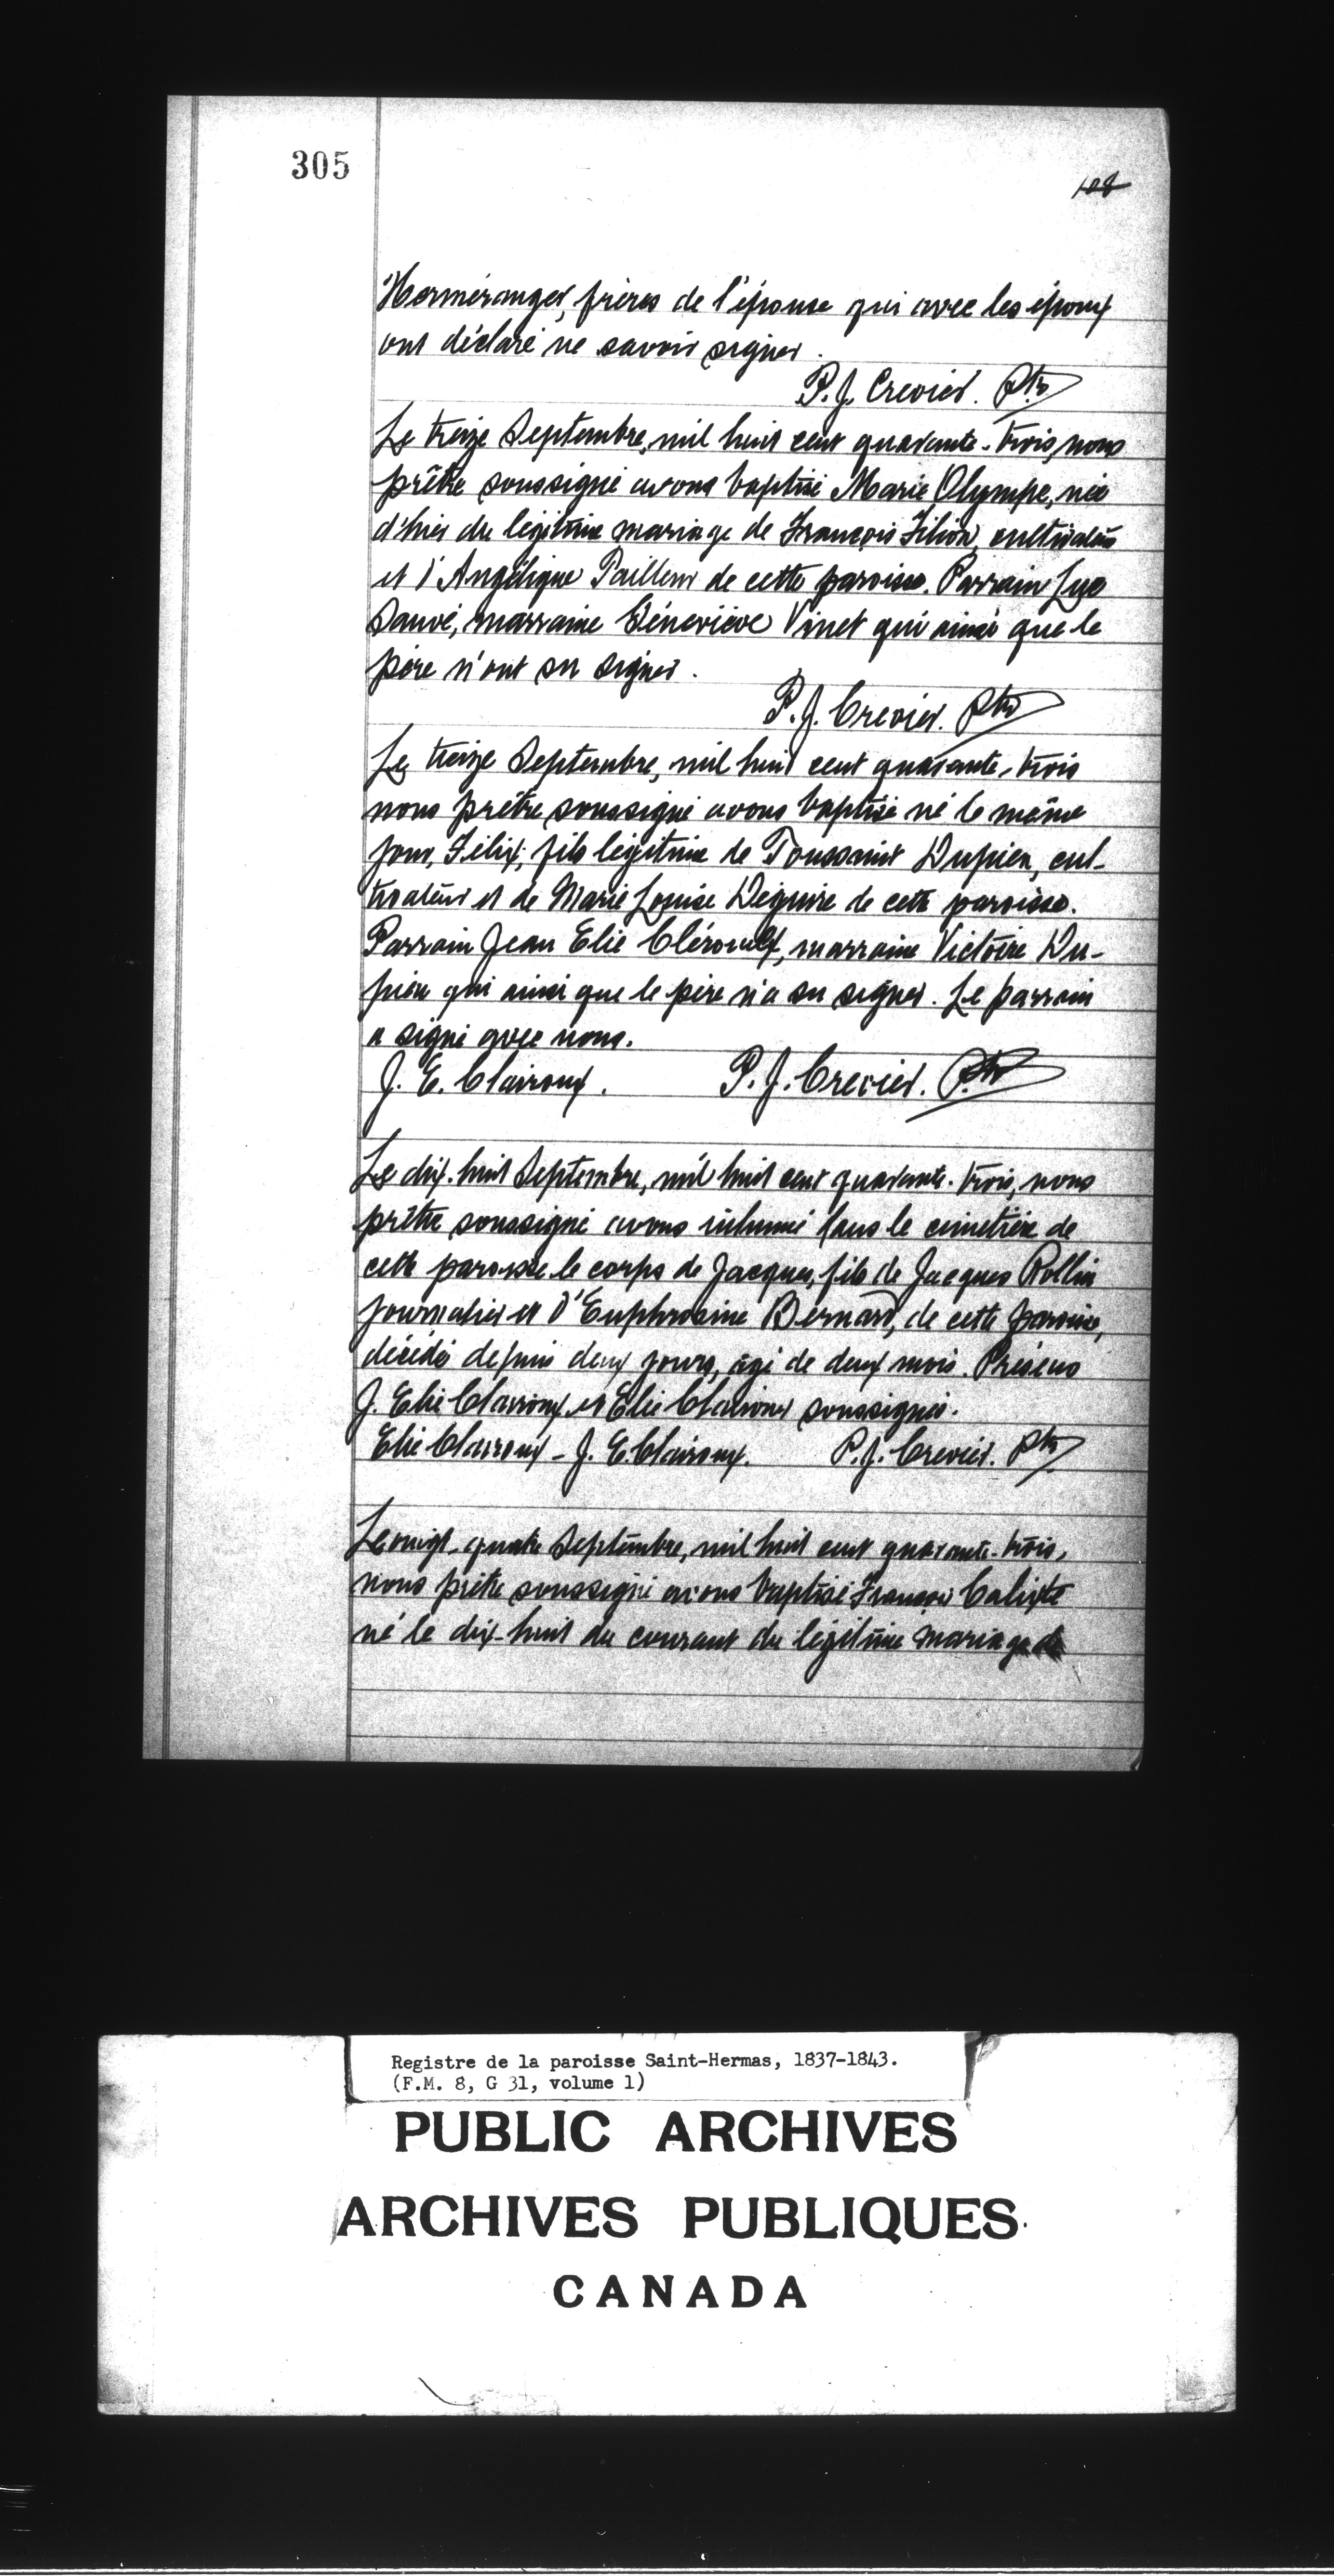 305
108
Herméranger, frères de l'épouse qui avec les époux
ont déclaré ne savoir signer.
P. J. Crevier. Ptre
Le treize Septembre, mil huit cent quarante-trois, nous
prêtre soussigné avons baptisé Marie Olympe, née
d'hier du légitime mariage de François Filion, cultivateur
et d'Angélique Pailleur de cette paroisse. Parrain Luc
Sauvé, marraine Géneviève Vinet qui ainsi que le
père n'ont su signer.
P. J. Crevier. Ptre
Le treize Septembre, mil huit cent quarante-trois
nous prêtre soussigné avons baptisé né le même
jour, Félix, fils légitime de Toussaint Dupien, cul-
tivateur et de Marie Louise Deguire de cette paroisse.
Parrain Jean Elie Cléroulx, marraine Victoire Du-
pien qui ainsi que le père n'a su signer. Le parrain
a signé avec nous.
J. E. Clairoux. P. J. Crevier. Ptre
Le dix-huit Septembre, mil huit cent quarante-trois, nous
prêtre soussigné avons inhumé dans le cimetière de
cette paroisse le corps de Jacques, fils de Jacques Rollin
journalier et d'Euphrosine Bernard, de cette paroisse,
décédé depuis deux jours, âgé de deux mois. Présens
J. Elie Clairoux et Elie Clairoux soussignés.
Elie Clairoux - J. E. Clairoux. P. J. Crevier. Ptre
Le vingt-quatre Septembre, mil huit cent quarante-trois,
nous prêtre soussigné avons baptisé François Calixte
né le dix-huit du courant du légitime mariage de
Registre de la paroisse Saint-Hermas, 1837-1843.
(F.M. 8, G 31, volume 1)
PUBLIC ARCHIVES
ARCHIVES PUBLIQUES
CANADA